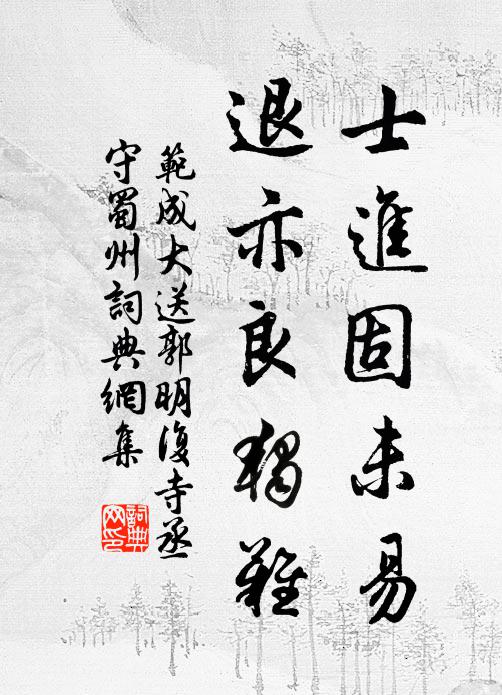 士進固未易
退亦良獨難
範成大送郭明復寺丞
守蜀州詞典網集
詞典
网印